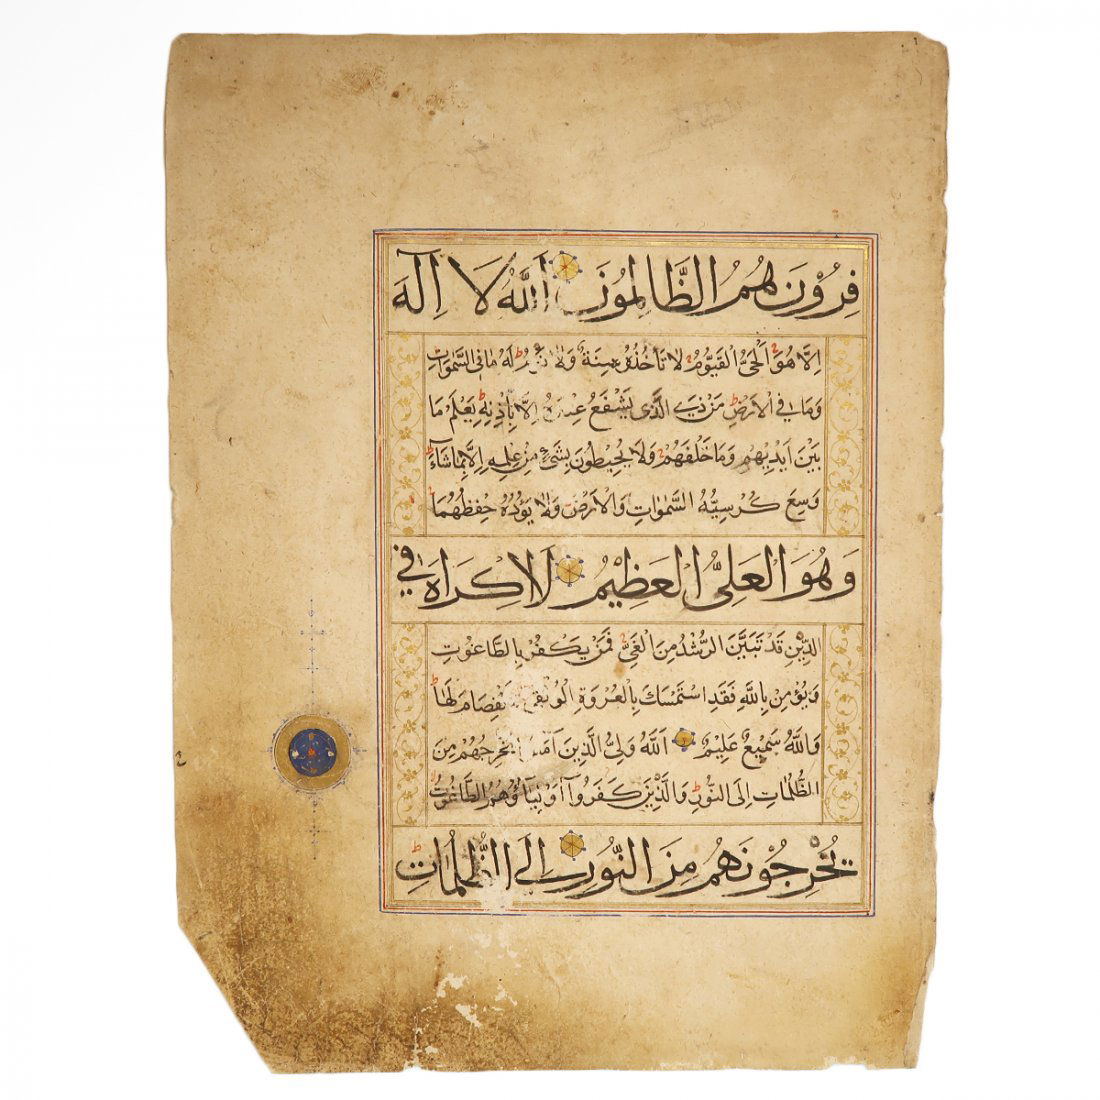 فِرُوْنَ هُمُ الظَّالِمُوْنَ اَللّٰهُ لَا اِلٰهَ
اِلَّا هُوَ اَلْحَيُّ الْقَيُّوْمُ لَا تَأْخُذُهُ سِنَةٌ وَلَا نَوْمٌ لَهُ مَا فِي السَّمٰوَاتِ
وَمَا فِي الْاَرْضِ مَنْ ذَا الَّذِي يَشْفَعُ عِنْدَهُ اِلَّا بِاِذْنِهِ يَعْلَمُ مَا
بَيْنَ اَيْدِيْهِمْ وَمَا خَلْفَهُمْ وَلَا يُحِيْطُوْنَ بِشَيْءٍ مِنْ عِلْمِهِ اِلَّا بِمَا شَاءَ
وَسِعَ كُرْسِيُّهُ السَّمٰوَاتِ وَالْاَرْضَ وَلَا يَؤُدُهُ حِفْظُهُمَا
وَهُوَ الْعَلِيُّ الْعَظِيْمُ لَا اِكْرَاهَ فِي
الدِّيْنِ قَدْ تَبَيَّنَ الرُّشْدُ مِنَ الْغَيِّ فَمَنْ يَكْفُرْ بِالطَّاغُوْتِ
وَيُؤْمِنْ بِاللّٰهِ فَقَدِ اسْتَمْسَكَ بِالْعُرْوَةِ الْوُثْقٰى نْفِصَامَ لَهَا
وَاللّٰهُ سَمِيْعٌ عَلِيْمٌ اَللّٰهُ وَلِيُّ الَّذِيْنَ اٰمَنُوا يُخْرِجُهُمْ مِنَ
الظُّلُمَاتِ اِلَى النُّوْرِ وَالَّذِيْنَ كَفَرُوْا اَوْلِيَاؤُهُمُ الطَّاغُوْتُ
يُخْرِجُوْنَهُمْ مِنَ النُّوْرِ اِلَى الظُّلُمَاتِ